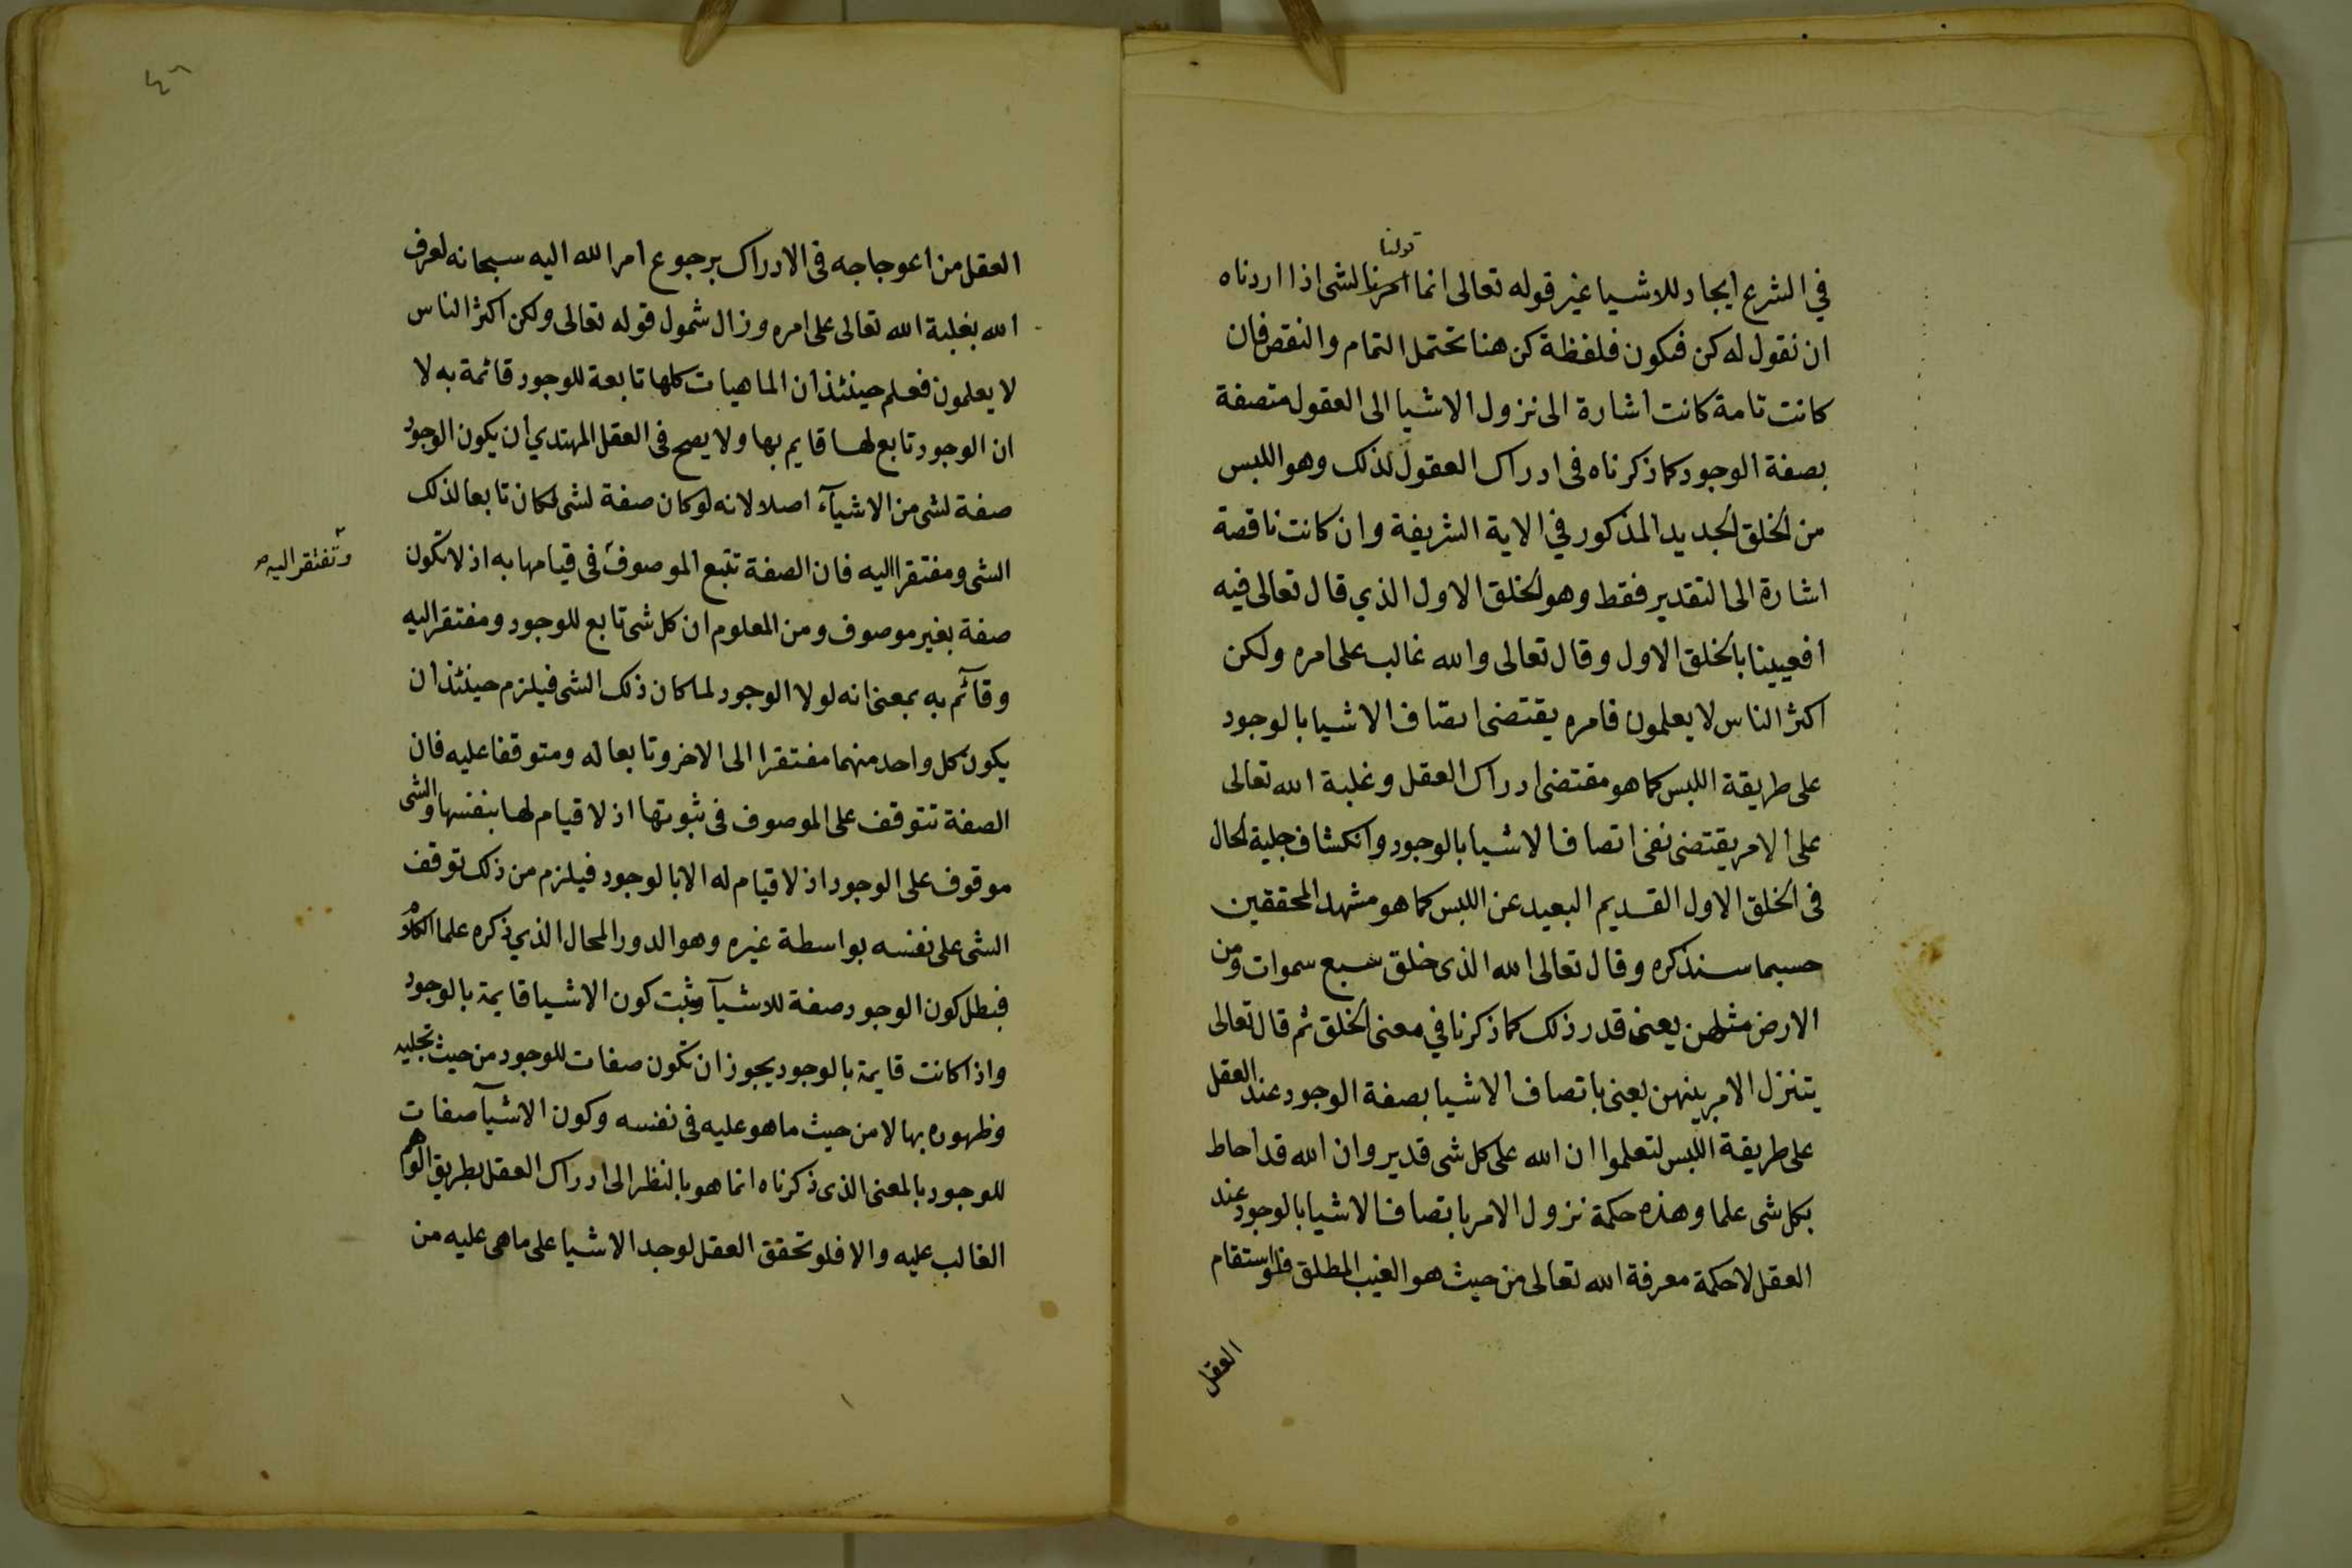 قولنا
في الشرع ايجاد للاشيا غير قوله تعالى انما امرنا لشى اذا اردناه
ان نقول له كن فيكون فلفظة كن هنا تحتمل التمام والنقص فان
كانت تامة كانت اشارة الى نزول الاشيا الى العقول متصفة
بصفة الوجود كما ذكرناه فى ادراك العقول لذلك وهو اللبس
من الخلق الجديد المذكور في الاية الشريفة وان كانت ناقصة
اشارة الى التقدير فقط وهو الخلق الاول الذي قال تعالى فيه
افعيينا بالخلق الاول وقال تعالى والله غالب على امره ولكن
اكثر الناس لا يعلمون فامره يقتضى اتصاف الاشيا بالوجود
على طريقة اللبس كما هو مقتضى ادراك العقل وغلبة الله تعالى
على الامر يقتضى نفى اتصاف الاشيا بالوجود وانكشاف جلية الحال
فى الخلق الاول القديم البعيد عن اللبس كما هو مشهد المحققين
حسبما سنذكره وقال تعالى الله الذى خلق سبع سموات ومن
الارض مثلهن يعنى قدر ذلك كما ذكرنا في معنى الخلق ثم قال تعالى
يتنزل الامر بينهن يعنى باتصاف الاشيا بصفة الوجود عند العقل
على طريقة اللبس لتعلموا ان الله على كل شى قدير وان الله قد احاط
بكل شى علما وهذه حكمة نزول الامر باتصاف الاشيا بالوجود عند
العقل لا حكمة معرفة الله تعالى من حيث هو الغيب المطلق فلو استقام
العقل
٤٨
العقل من اعوجاجه فى الادراك برجوع امر الله اليه سبحانه لعرف
الله بغلبة الله تعالى على امره وزال شمول قوله تعالى ولكن اكثر الناس
لا يعلمون فعلم حينئذ ان الماهيات كلها تابعة للوجود قائمة به لا
ان الوجود تابع لها قايم بها ولا يصح فى العقل المهتدي ان يكون الوجود
صفة لشى من الاشيآء اصلا لانه لو كان صفة لشى لكان تابعا لذلك
الشى ومفتقرا اليه فان الصفة تتبع الموصوف فى قيامها به اذ لا تكون
وتفتقر اليه
صفة بغير موصوف ومن المعلوم ان كل شى تابع للوجود ومفتقر اليه
وقآئم به بمعنى انه لولا الوجود لما كان ذلك الشى فيلزم حينئذ ان
يكون كل واحد منهما مفتقرا الى الاخر وتابعا له ومتوقفا عليه فان
الصفة تتوقف على الموصوف فى ثبوتها اذ لا قيام لها بنفسها والشى
موقوف على الوجود اذ لا قيام له الا بالوجود فيلزم من ذلك توقف
الشى على نفسه بواسطة غيره وهو الدور المحال الذي ذكره علما الكلام
فبطل كون الوجود صفة للاشيآ وثبت كون الاشيا قايمة بالوجود
واذا كانت قايمة بالوجود يجوز ان تكون صفات للوجود من حيث تجليه
وظهوره بها لا من حيث ما هو عليه فى نفسه وكون الاشيآ صفات
للوجود بالمعنى الذى ذكرناه انما هو بالنظر الى ادراك العقل بطريق الوهم
الغالب عليه والا فلو تحقق العقل لوجد الاشيا على ما هى عليه من